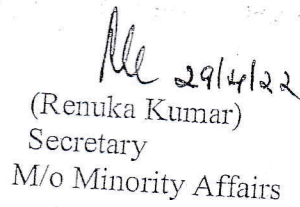 29/4/22
(Renuka Kumar)
Secretary
M/o Minority Affairs